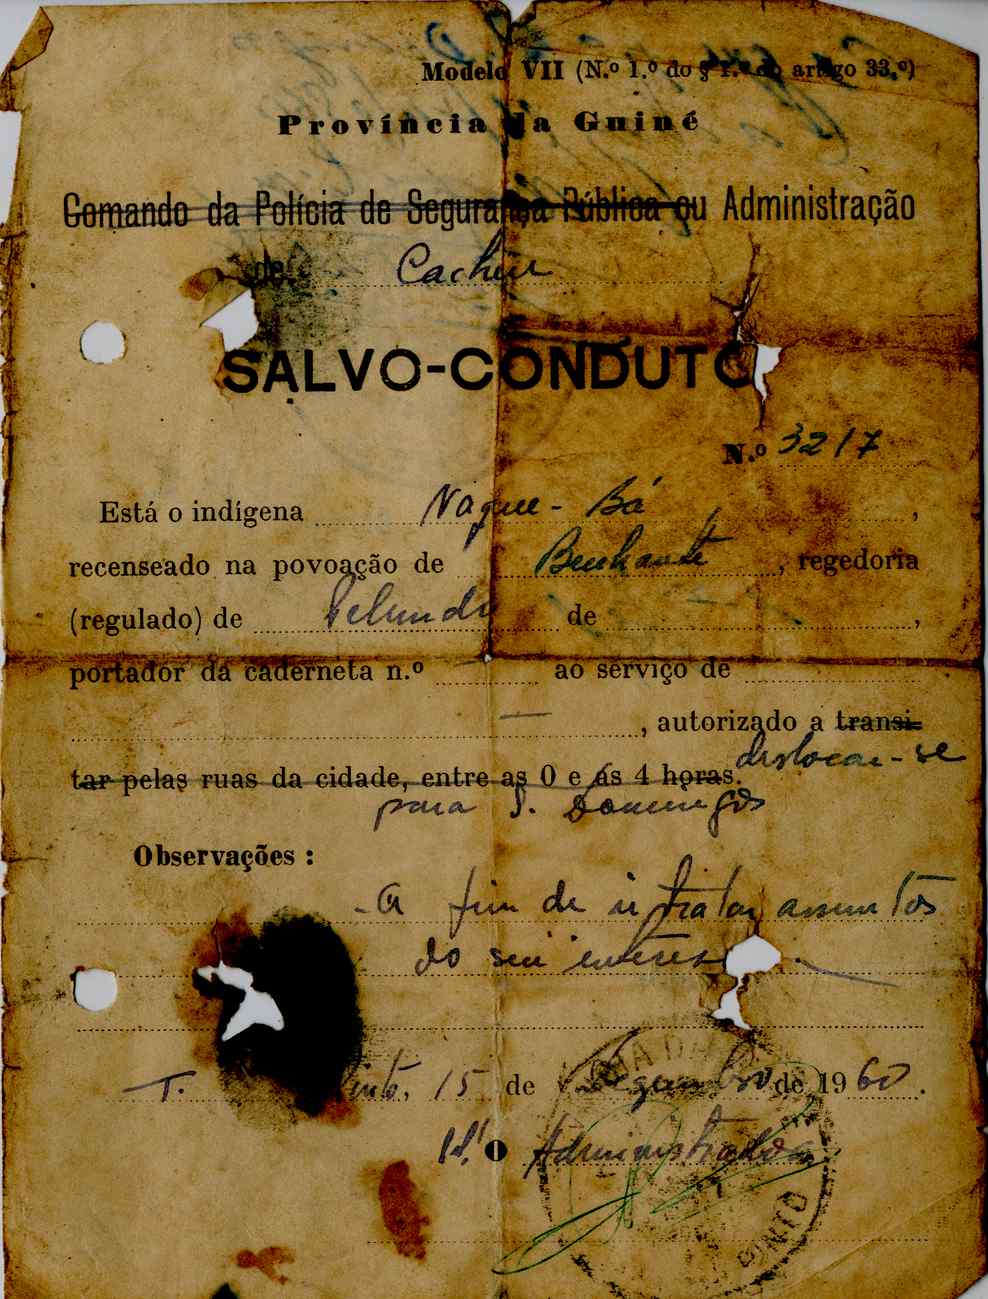 Modelo VII (N.º 1.º do § 1.º do artigo 33.º)
Província da Guiné
Comando da Polícia de Segurança Pública ou Administração
de Cacheu
SALVO-CONDUTO
N.º 3217
Está o indígena Naque-Bá,
recenseado na povoação de, regedoria
(regulado) de Pelundo de,
portador da caderneta n.º ao serviço de
, autorizado a transi-
deslocar-se
tar pelas ruas da cidade, entre as 0 e ás 4 horas.
para S. Domingos
Observações :
-A fim de ir tratar assuntos
do seu interesse.
T. Pinto, 15 de Dezembro de 1960.
O Administrador
PINTO